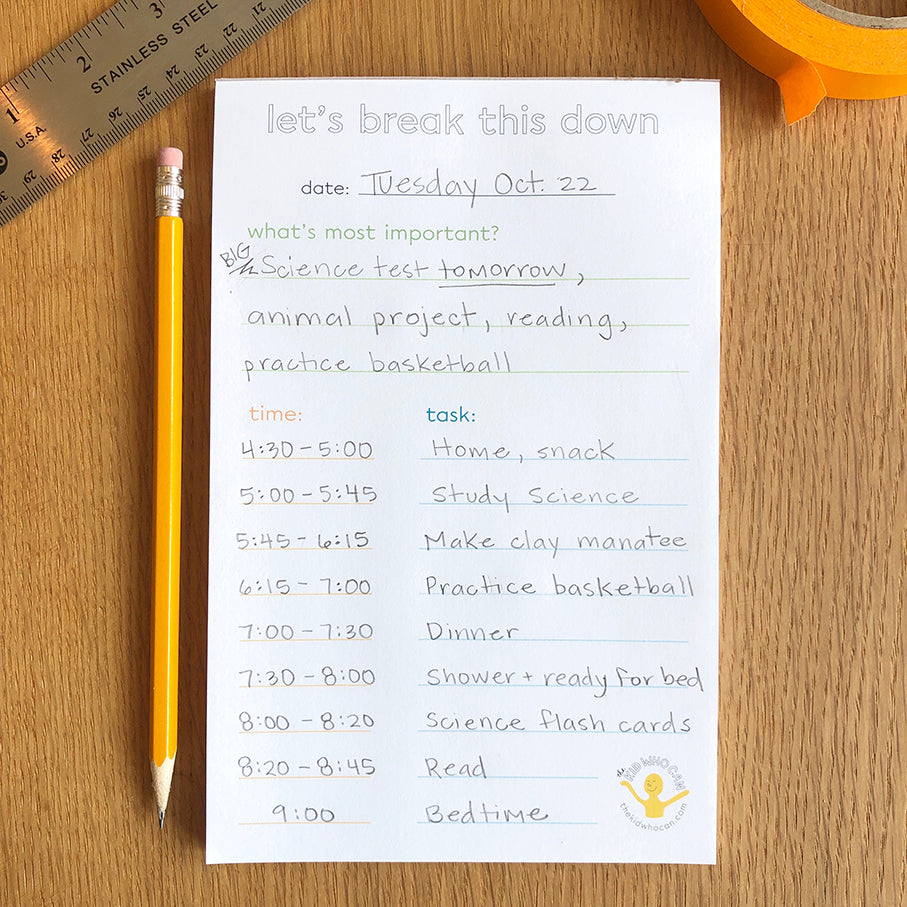 1 2 3
STAINLESS STEEL
U.S.A.
30 29 28 27 26 25 24 23 22 21
let's break this down
date: Tuesday Oct. 22
what's most important?
BIG Science test tomorrow,
animal project, reading,
practice basketball
time: task:
4:30 - 5:00 Home, snack
5:00 - 5:45 Study Science
5:45 - 6:15 Make clay manatee
6:15 - 7:00 Practice basketball
7:00 - 7:30 Dinner
7:30 - 8:00 Shower + ready for bed
8:00 - 8:20 Science flash cards
8:20 - 8:45 Read
9:00 Bedtime
the KID WHO CAN
thekidwhocan.com